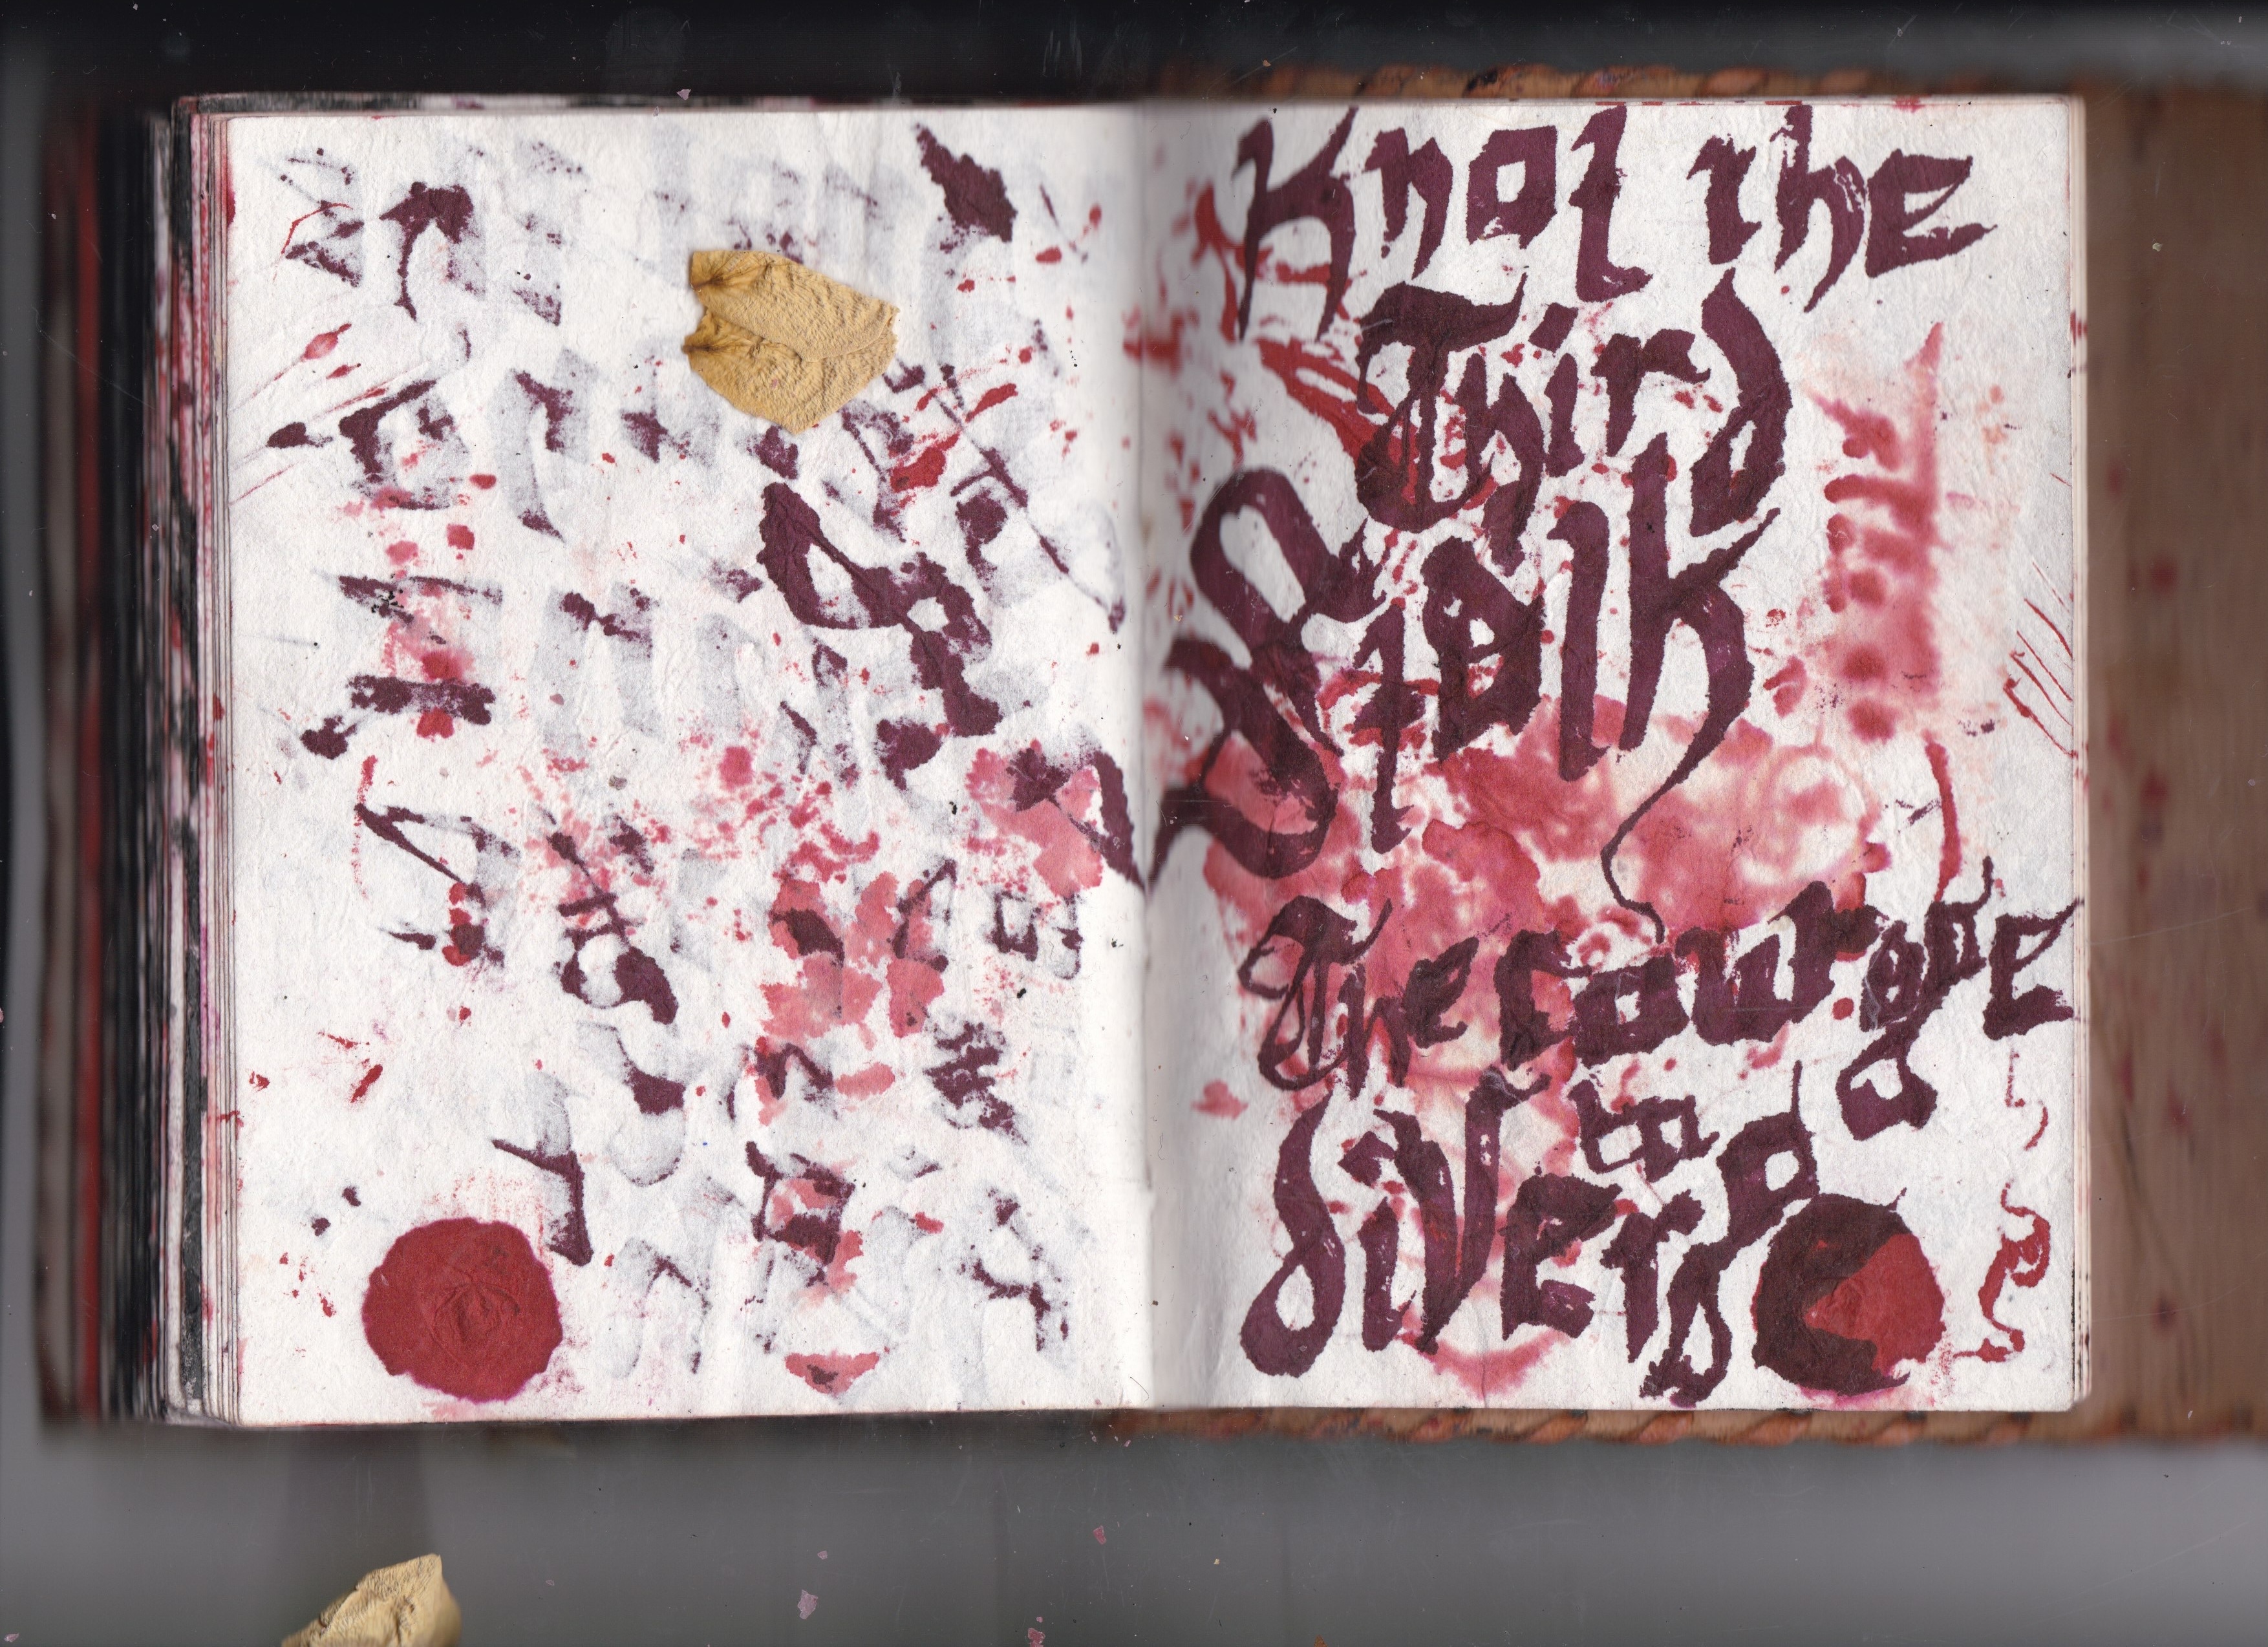 Knot the
Third
Stalk
The courage
to
diverge